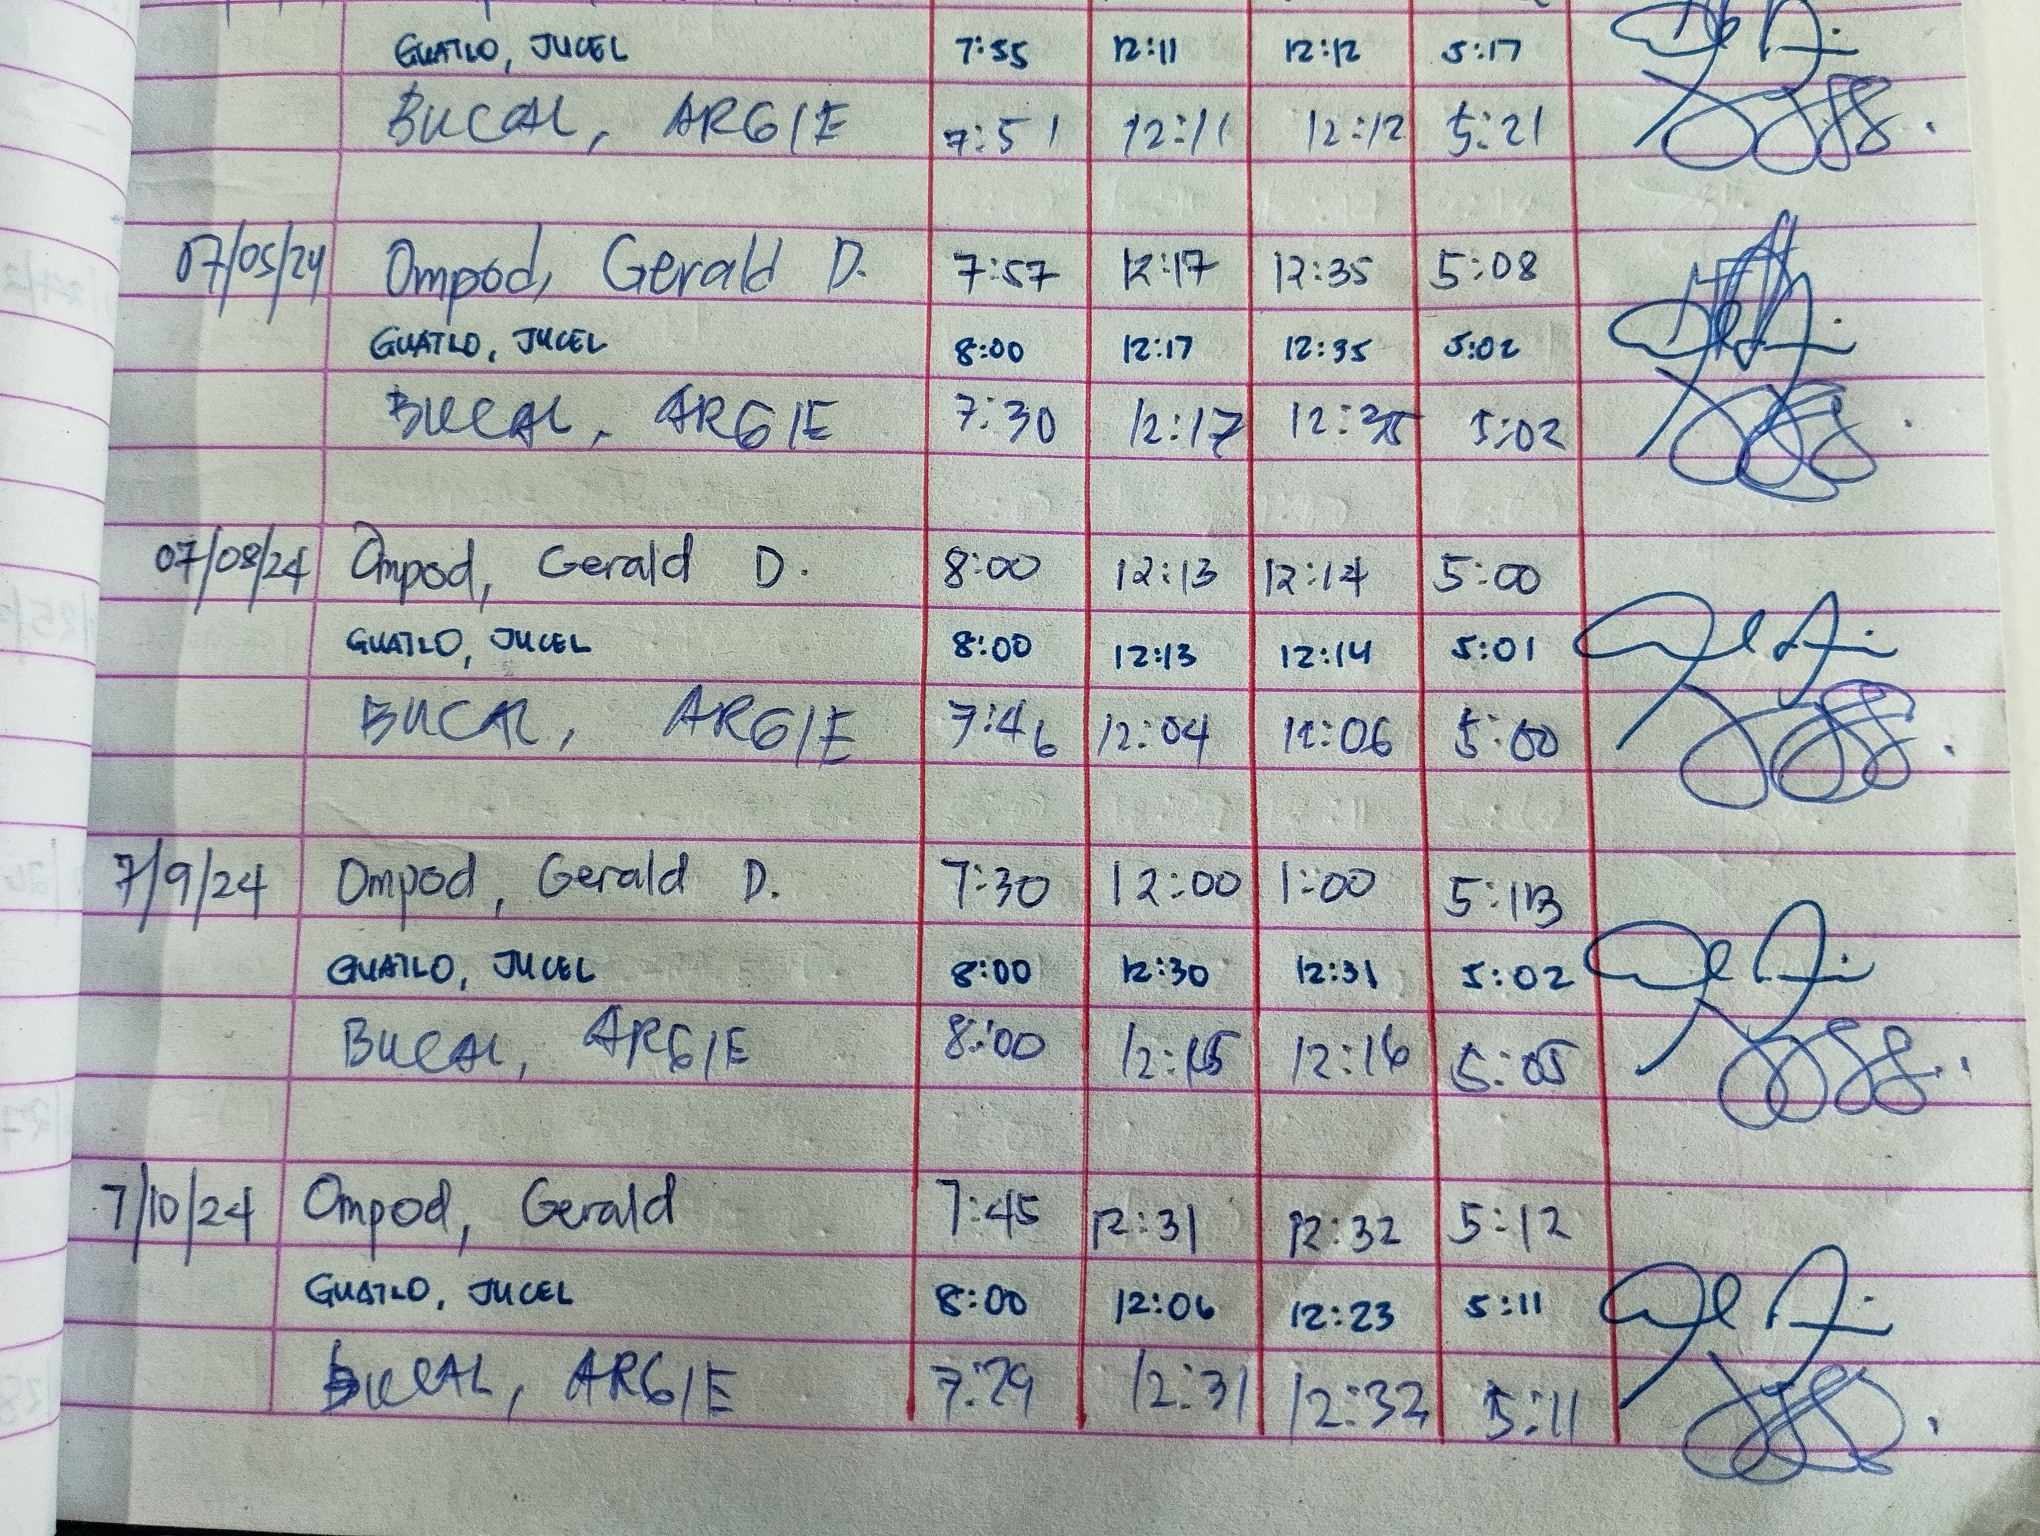 GUATLO, JUCEL 7:55 12:11 12:12 5:17
BUCAL, ARGIE 7:51 12:11 12:12 5:21
07/05/24 Ompod, Gerald D. 7:57 12:17 12:35 5:08
GUATLO, JUCEL 8:00 12:17 12:35 5:02
BUCAL, ARGIE 7:30 12:17 12:35 5:02
07/08/24 Ompod, Gerald D. 8:00 12:13 12:14 5:00
GUATLO, JUCEL 8:00 12:13 12:14 5:01
BUCAL, ARGIE 7:46 12:04 12:06 5:00
7/9/24 Ompod, Gerald D. 7:30 12:00 1:00 5:13
GUATLO, JUCEL 8:00 12:30 12:31 5:02
BUCAL, ARGIE 8:00 12:15 12:16 5:05
7/10/24 Ompod, Gerald 7:45 12:31 12:32 5:12
GUATLO, JUCEL 8:00 12:06 12:23 5:11
BUCAL, ARGIE 7:29 12:31 12:32 5:11